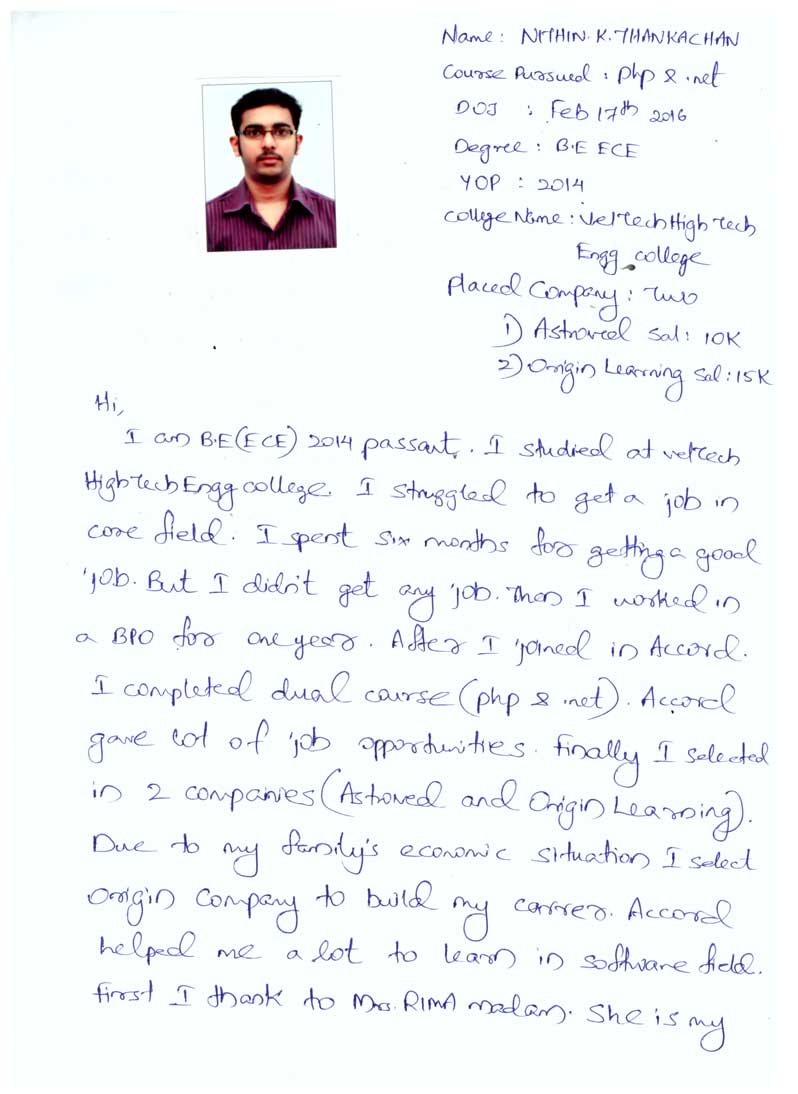 Name: NITHIN.K.THANKACHAN
Course Pursued : php & .net
DOJ : Feb 17th 2016
Degree : B.E ECE
YOP : 2014
College Name : VelTech High Tech
Engg college
Placed Company : Two
1) Astroved Sal: 10K
2) Origin Learning Sal: 15K
Hi,
I am B.E(ECE) 2014 passout. I studied at veltech
High Tech Engg college. I struggled to get a job in
core field. I spent six months for getting a good
job. But I didn't get any job. Then I worked in
a BPO for one year. After I joined in Accord.
I completed dual course (php & .net). Accord
gave lot of job opportunities. Finally I selected
in 2 companies (Astroved and Origin Learning).
Due to my family's economic situation I select
Origin Company to build my carrer. Accord
helped me a lot to learn in software field.
First I thank to Mrs. RIMA madam. She is my